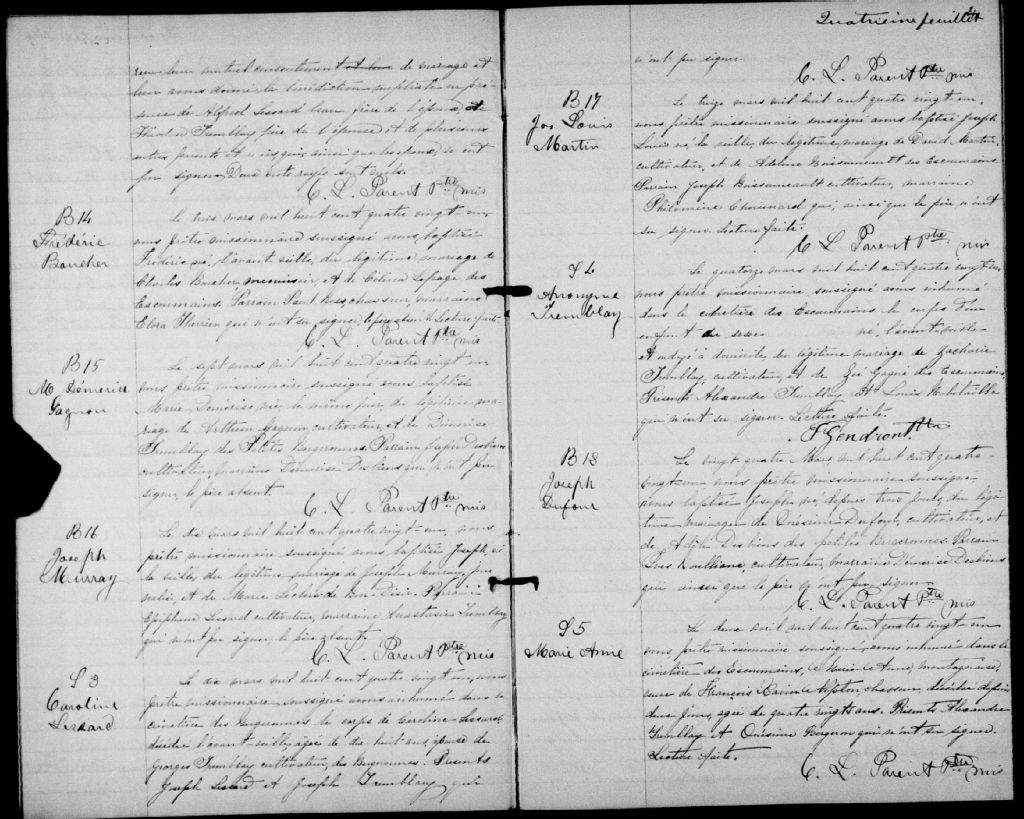 reçu leur mutuel consentement et leur de mariage et
leur avons donné la bénédiction nuptiale en pré-
sence de Alfred Lessard frère de l'époux, et
Tremblay père de l'épouse, et de plusieurs
autres parents et amis qui, ainsi que les époux, ne ont
pu signer. Deux mots rayés sont nuls.
C. L. Parent Ptre Mis
B 14
Frédéric
Boucher
Le trois mars mil huit cent quatre vingt un
nous prêtre missionnaire soussigné avons baptisé
Frédéric né l'avant veille, du légitime mariage de
Charles Boucher menuisier, et de Célina Lepage des
Escoumains. Parrain Paul Ross, chasseur, marraine
Elva Therrien qui n'ont su signer, le père absent. Lecture faite.
C. L. Parent Ptre Mis
B 15
M. Démerise
Gagnon
Le sept mars mil huit cent quatre vingt un
nous prêtre missionnaire soussigné avons baptisé
Marie Démerise née le même jour, du légitime ma-
riage de William Gagnon, cultivateur, et de Démerise
Tremblay des Petites Bergeronnes. Parrain Joseph Desbiens
cultivateur, marraine Démerise Desbiens qui n'ont pu
signer, le père absent.
C. L. Parent Ptre Mis
B 16
Joseph
Murray
Le dix mars mil huit cent quatre vingt-un, nous
prêtre missionnaire soussigné avons baptisé Joseph, né
la veille, du légitime mariage de Joseph Murray, jour-
nalier, et de Marie Leclerc de Bon Désir. Parrain
Epiphane Lessard cultivateur, marraine Anastasie Tremblay
qui n'ont pu signer, le père absent.
C. L. Parent Ptre Mis
S 3
Caroline
Lessard
Le dix mars mil huit cent quatre vingt un, nous
prêtre missionnaire soussigné avons inhumé dans le
cimetière des Bergeronnes le corps de Caroline Lessard
décédée l'avant-veille, agée de dix huit ans, épouse de
Georges Tremblay cultivateur, des Bergeronnes. Présents
Joseph Lessard et Joseph Tremblay qui
Quatrième feuillet
n'ont pu signer.
C. L. Parent Ptre Mis
B 17
Jos Louis
Martin
Le treize mars mil huit cent quatre vingt un,
nous prêtre missionnaire soussigné avons baptisé Joseph
Louis né la veille, du légitime mariage de David Martin
cultivateur, et de Adeline Boissonneault des Escoumains.
Parrain Joseph Boissonneault cultivateur, marraine
Philomène Chouinard qui, ainsi que le père n'ont
su signer. Lecture faite.
C. L. Parent Ptre Mis
S 4
Anonyme
Tremblay
Le quatorze mars mil huit cent quatre vingt un,
nous prêtre missionnaire soussigné avons inhumé
dans le cimetière des Escoumains le corps d'un
enfant du sexe né, l'avant-veille
et ondoyé à domicile, du légitime mariage de Zacharie
Tremblay, cultivateur, et de Zoé Gagné des Escoumains
Présents Alexandre Tremblay et Louis
qui n'ont su signer. Lecture faite.
J. Gendron Ptre
B 18
Joseph
Dufour
Le vingt quatre Mars, mil huit cent quatre-
vingt-un nous prêtre missionnaire soussigné
avons baptisé Joseph né depuis trois jours, du légi-
time mariage de Onésime Dufour, cultivateur, et
de Adèle Desbiens des petites Bergeronnes. Parrain
Boulianne, cultivateur, marraine Démerise Desbiens
qui ainsi que le père n'ont pu signer
C. L. Parent Ptre Mis
S 5
Marie Anne
Le deux avril mil huit cent quatre vingt un
nous prêtre missionnaire soussigné avons inhumé dans le
cimetière des Escoumains, Marie Anne, montagnaise,
veuve de François chasseur, décédée depuis
deux jours, agée de quatre vingts ans. Présents Alexandre
Tremblay et Onésime Bergeron qui n'ont su signer.
Lecture faite.
C. L. Parent Ptre Mis